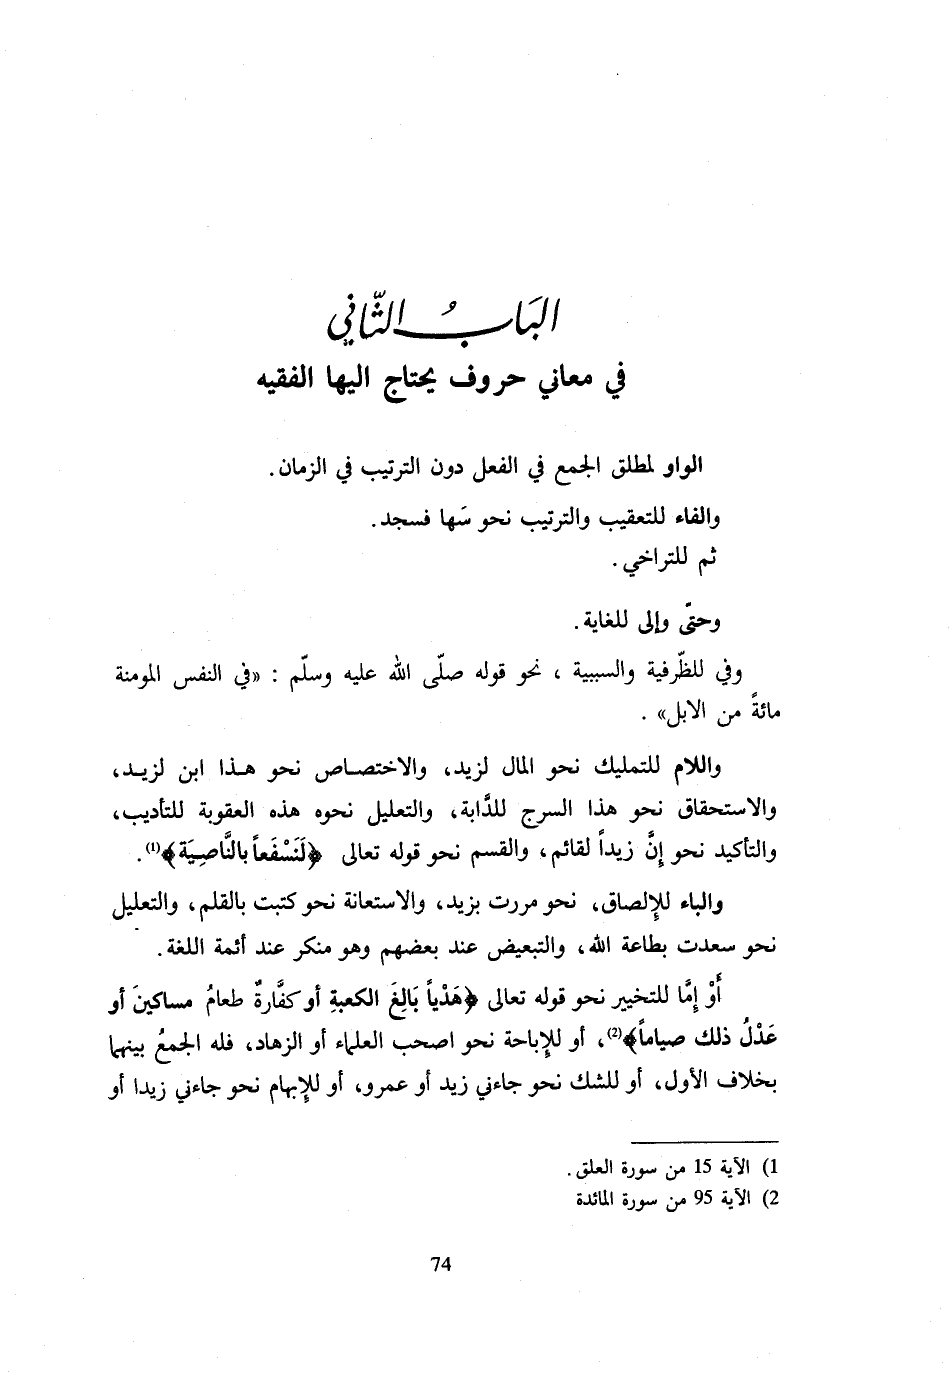 البَابُ الثَّاني
في معاني حروف يحتاج اليها الفقيه
الواو لمطلق الجمع في الفعل دون الترتيب في الزمان.
والفاء للتعقيب والترتيب نحو سَها فسجد.
ثم للتراخي.
وحتّى وإلى للغاية.
وفي للظّرفية والسببية ، نحو قوله صلّى الله عليه وسلّم : «في النفس المومنة
مائةً من الابل» .
واللام للتمليك نحو المال لزيد، والاختصاص نحو هذا ابن لزيد،
والاستحقاق نحو هذا السرج للدَّابة، والتعليل نحوه هذه العقوبة للتأديب،
والتأكيد نحو إنَّ زيداً لقائم، والقسم نحو قوله تعالى ﴿لَنَسْفَعاً بالنَّاصِيَة﴾(1).
والباء للإلصاق، نحو مررت بزيد، والاستعانة نحو كتبت بالقلم، والتعليل
نحو سعدت بطاعة الله، والتبعيض عند بعضهم وهو منكر عند أئمة اللغة.
أَوْ إِمَّا للتخيير نحو قوله تعالى ﴿هَدْياً بَالِغَ الكعبةِ أو كفَّارةٌ طعامُ مساكينَ أو
عَدْلُ ذلك صياماً﴾(2)، أو للإباحة نحو اصحب العلماء أو الزهاد، فله الجمعُ بينهما
بخلاف الأول، أو للشك نحو جاءني زيد أو عمرو، أو للإبهام نحو جاءني زيدا أو
1) الآية 15 من سورة العلق.
2) الآية 95 من سورة المائدة
74